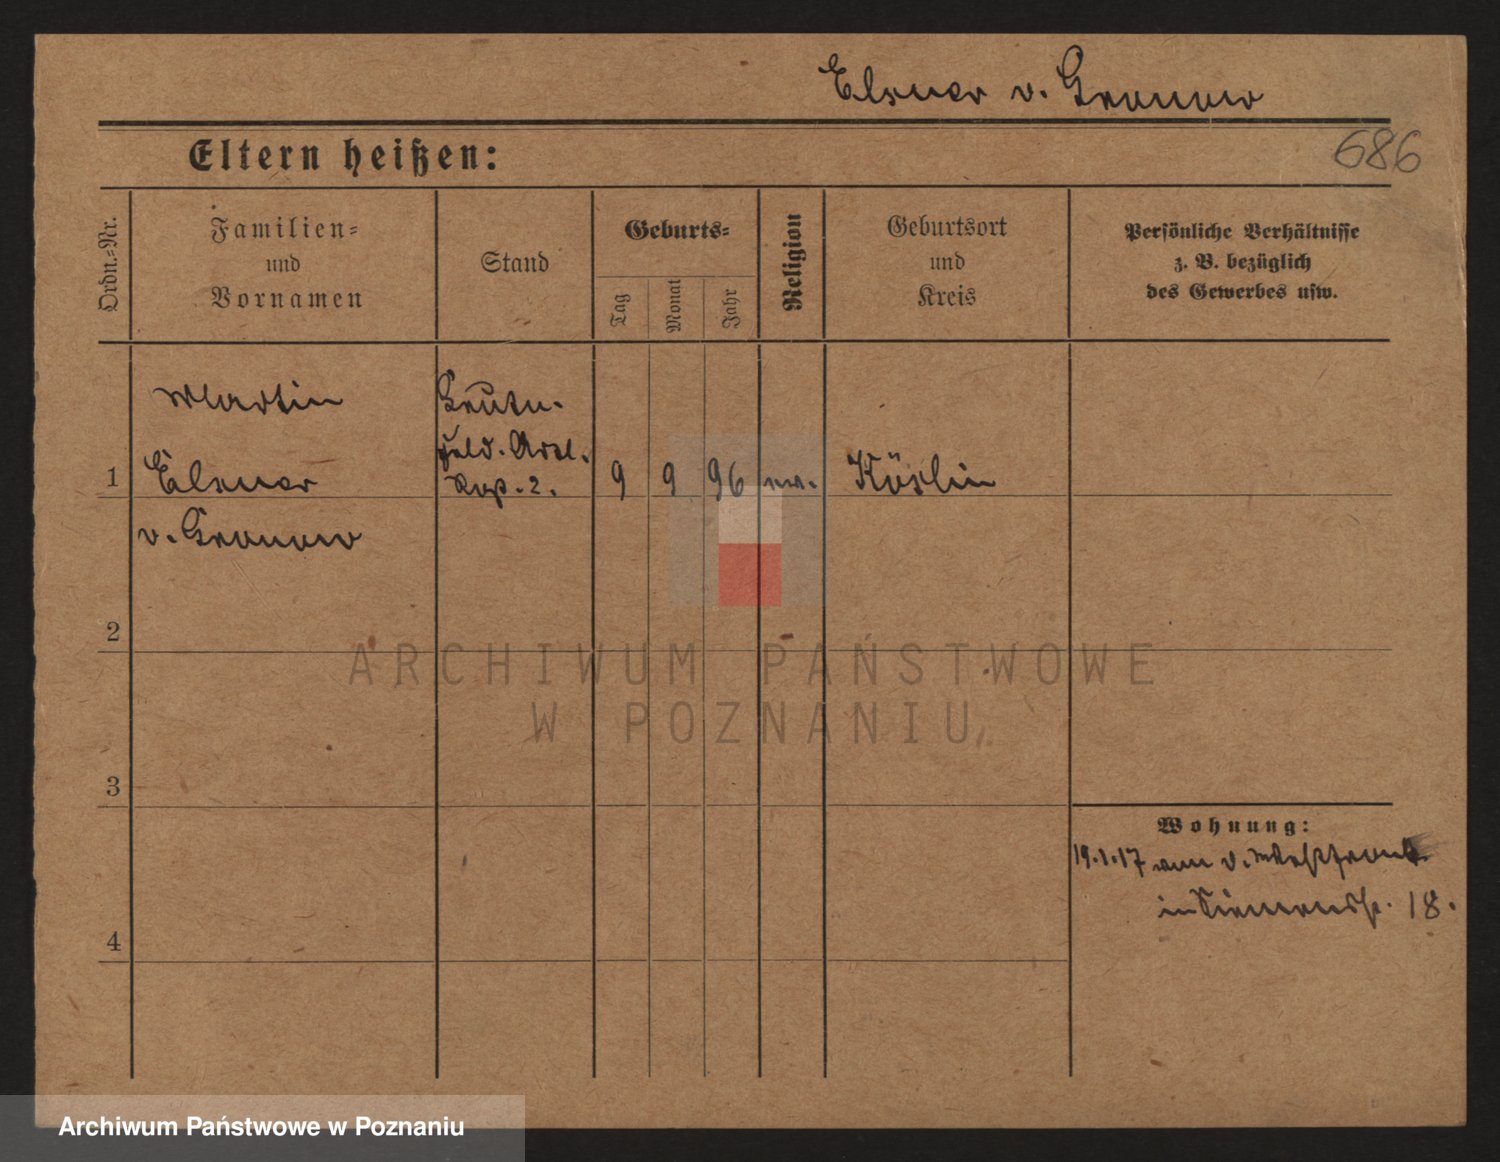 Elsner v. Gronow
686
Eltern heißen:
Ordn.-Nr.
Familien-
und
Vornamen
Stand
Geburts-
Tag
Monat
Jahr
Religion
Geburtsort
und
Kreis
Persönliche Verhältnisse
z. B. bezüglich
des Gewerbes usw.
Martin
Leutn.
Feld. Artl.
1
Elsner
2.
9
9
96
ev.
Köslin
v. Gronow
2
ARCHIWUM PAŃSTWOWE
W POZNANIU
3
Wohnung:
19.1.17 v. Westfront
in 18.
4
Archiwum Państwowe w Poznaniu